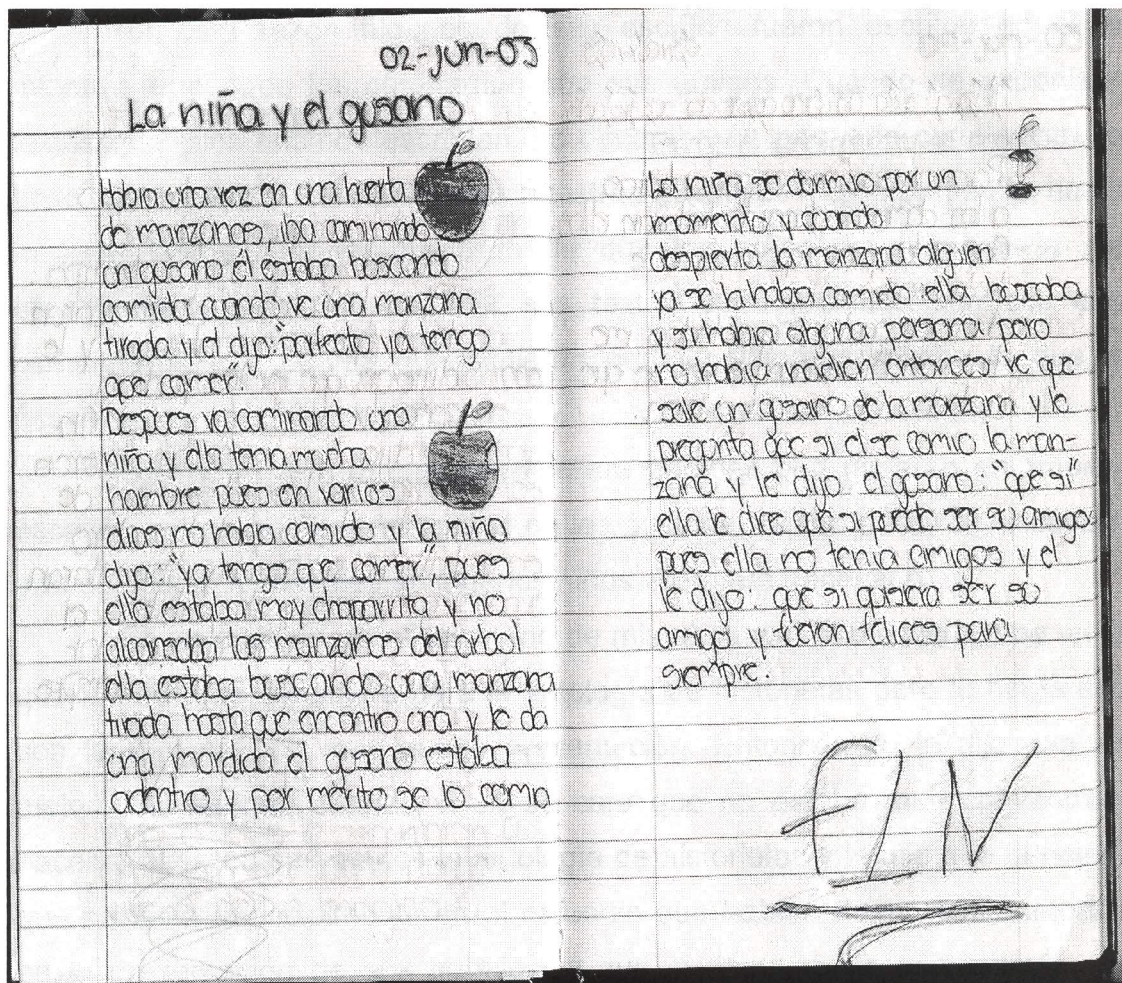 02-jun-03
La niña y el gusano
Habia una vez en una huerta
de manzanas, iba caminando
un gusano él estaba buscando
comida cuando ve una manzana
tirada y el dijo: "perfecto ya tengo
que comer".
Despues va caminando una
niña y ella tenia mucha
hambre pues en varios
dias no habia comido y la niña
dijo: "ya tengo que comer", pues
ella estaba muy chaparrita y no
alcanzaba las manzanas del arbol
ella estaba buscando una manzana
tirada hasta que encontro una y le da
una mordida el gusano estaba
adentro y por merito se lo comia
La niña se durmio por un
momento y cuando
despierto la manzana alguien
ya se la habia comido ella buscaba
y si habia alguna persona pero
no habia nadien entonces ve que
sale un gusano de la manzana y le
pregunta que si el se comio la man-
zana y le dijo el gusano: "que si"
ella le dice que si puede ser su amigo
pues ella no tenia amigos y el
le dijo: que si quisiera ser su
amigo y fueron felices para
siempre!
FIN